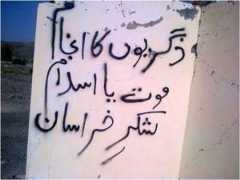 ذگریوں کا انجام
موت یا اسلام
لشکرِ خراسان